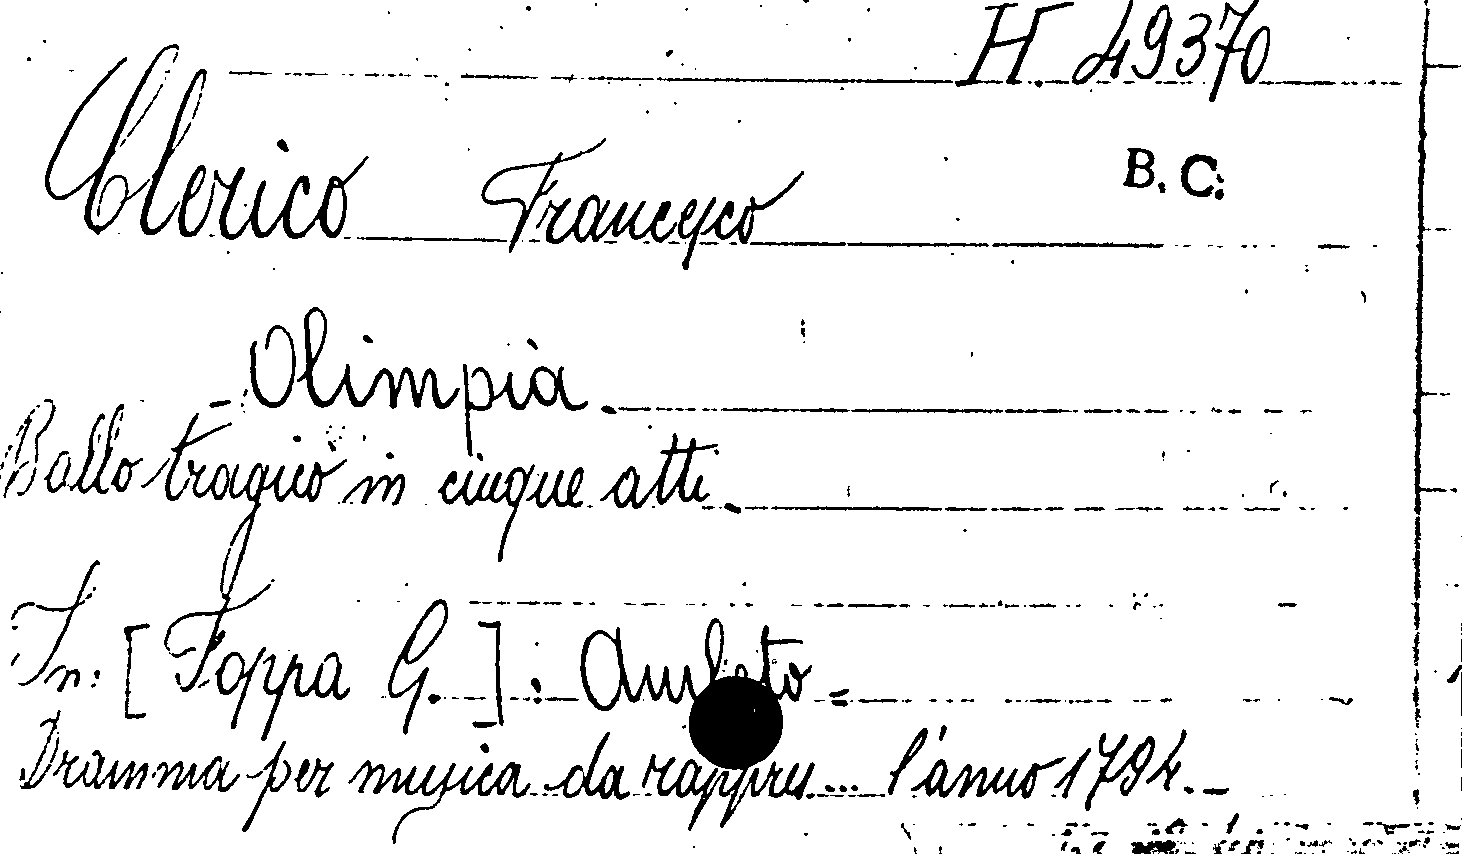 H. 49370
Clerico Francesco
B. C.
- Olimpia.
Ballo tragico in cinque atti.
In: [Foppa G.]: Amleto =
Dramma per musica da rappres... l'anno 1794. -